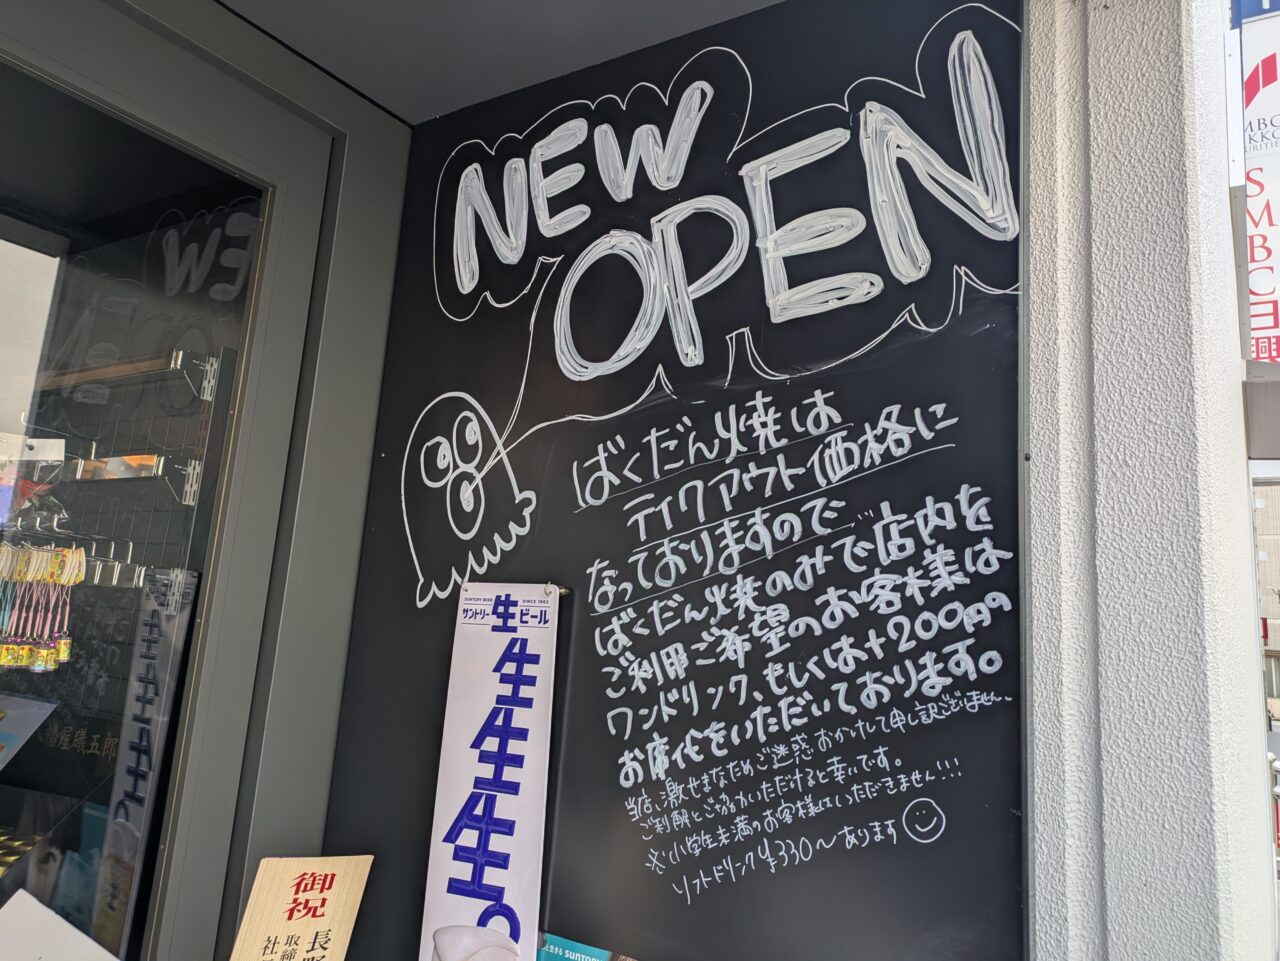 NEW
OPEN
ばくだん焼は
テイクアウト価格に
なっておりますので
ばくだん焼のみで店内を
ご利用ご希望のお客様は
ワンドリンク、もしくは+200円の
お席代をいただいております。
当店、激せまなためご迷惑おかけして申し訳ございません、
ご利解とご協力いただけると幸いです。
※小学生未満のお客様はいただきません!!!
ソフトドリンク¥330〜あります
SUNTORY BEER SINCE 1963
サントリー生ビール
生生生生生。
御祝
長野
取締
社
八幡屋礒五郎
SUNTORY
SMBC日興